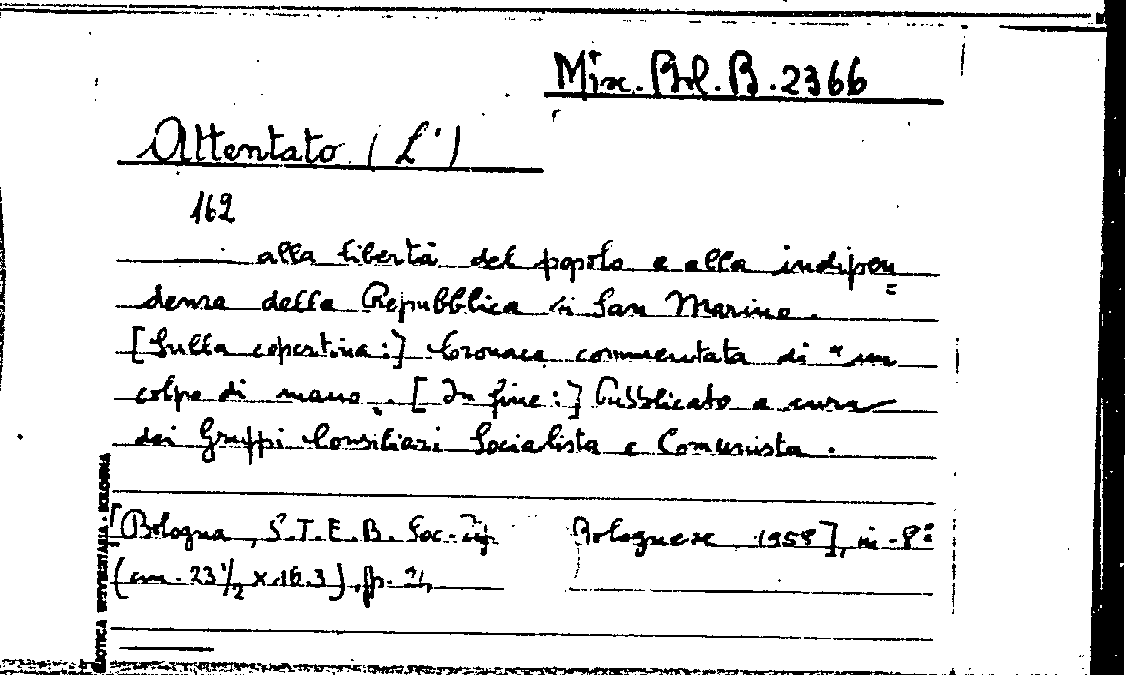 Misc. Bol. B. 2366
Attentato (L')
162
alla libertà del popolo e alla indipen=
denza della Repubblica di San Marino.
[Sulla copertina:] Cronaca commentata di "un
colpo di mano". [In fine:] Pubblicato a cura
dei Gruppi Consiliari Socialista e Comunista.
[Bologna, S.T.E.B. Soc. Tip. Bolognese, 1958], in-8°
(cm. 23½ x 16.3), pp.
UNIVERSITARIA - BOLOGNA